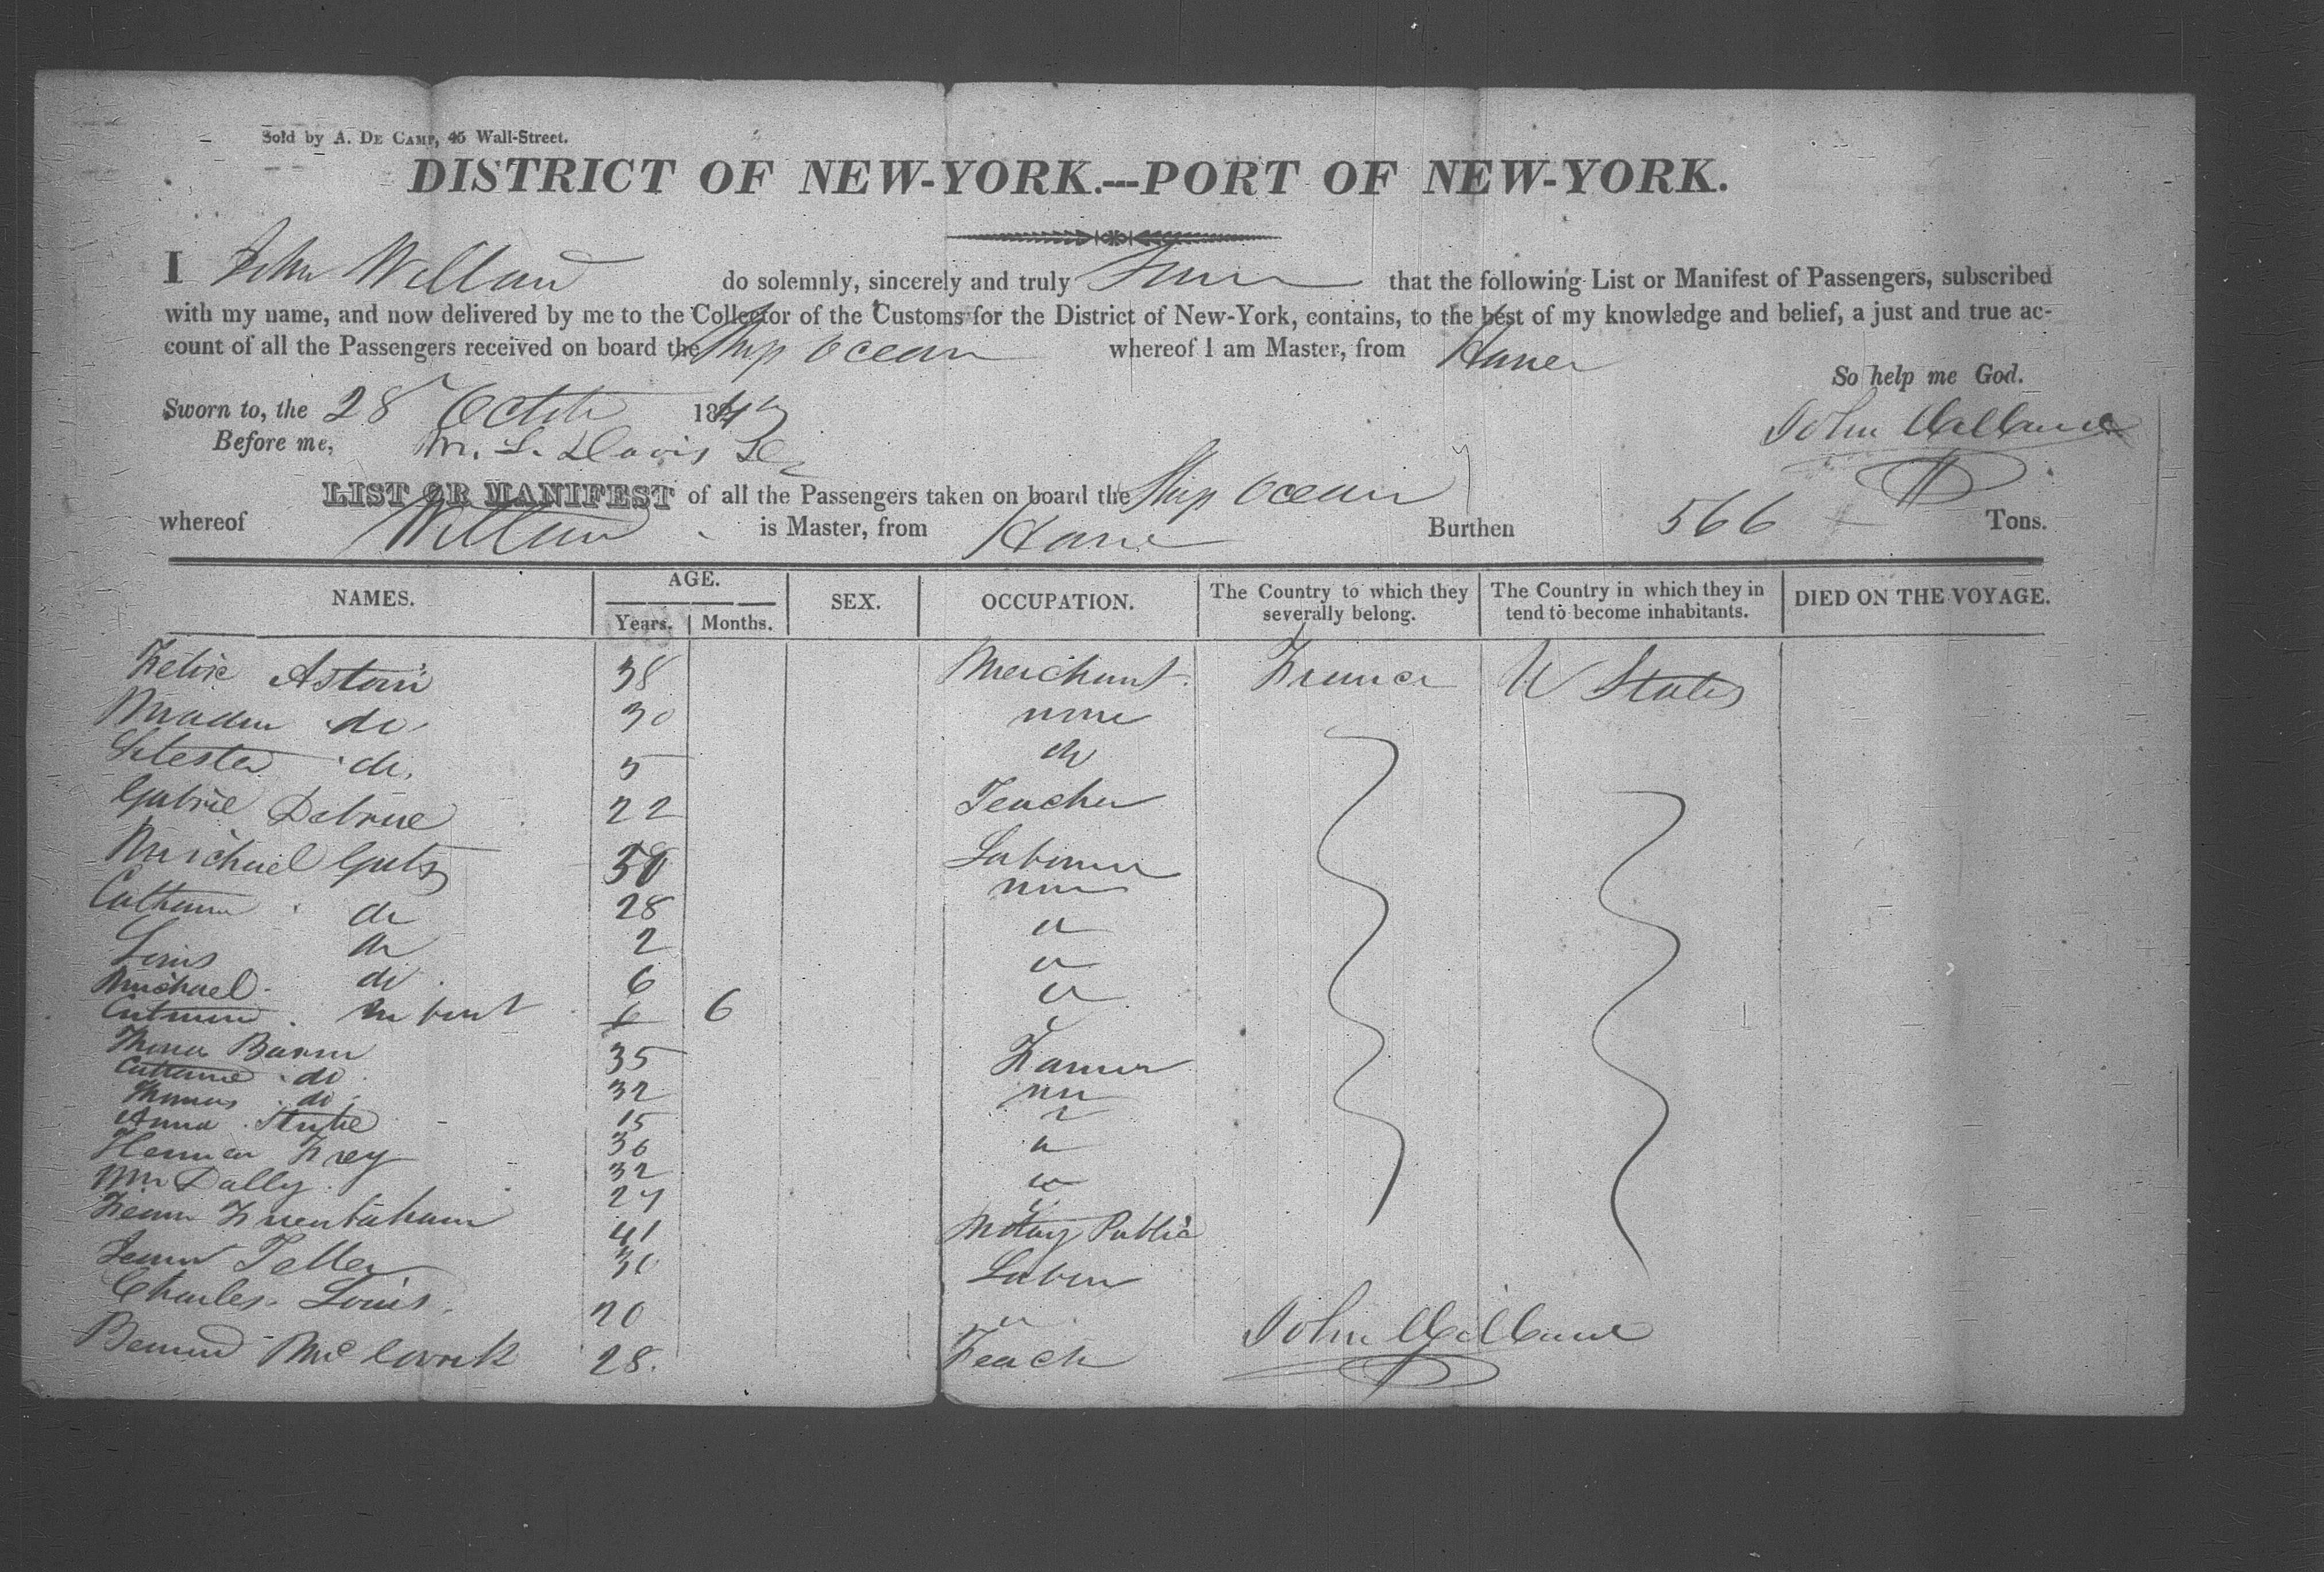 Sold by A. DE CAMP, 45 Wall-Street.
DISTRICT OF NEW-YORK.---PORT OF NEW-YORK.
I John Willard do solemnly, sincerely and truly Swear that the following List or Manifest of Passengers, subscribed
with my name, and now delivered by me to the Collector of the Customs for the District of New-York, contains, to the best of my knowledge and belief, a just and true ac-
count of all the Passengers received on board the Ship Ocean whereof I am Master, from Havre
So help me God.
Sworn to, the 28 Octbr 18
John Willard
Before me, M. L. Davis
LIST OR MANIFEST of all the Passengers taken on board the Ship Ocean
whereof Willard is Master, from Havre Burthen 566 Tons.
NAMES. AGE. Years. Months. SEX. OCCUPATION. The Country to which they severally belong. The Country in which they in tend to become inhabitants. DIED ON THE VOYAGE.
Felix Astoin 38 Merchant. France U States
do 30 none
do. 5 do
Gabriel Debrue 22 Teacher
Michael Gutz Labourer
Catherine do 28 none
Louis do 2 "
Michael do 6 "
infant 6 "
35 Farmer
Catherine do 32
Thomas do 15 "
Anna 36 "
Herman Frey 32 "
Dally 27 "
41 Notary Public
Teller Labor
Charles Louis 20 "
28. Teach
John Willard